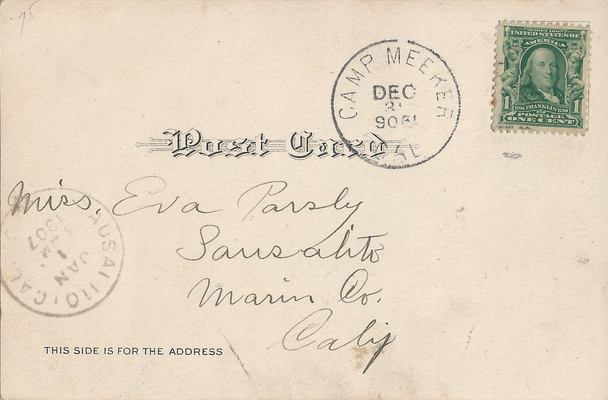 75
UNITED STATES OF
AMERICA
1 FRANKLIN 1
POSTAGE
ONE CENT
CAMP MEEKER
DEC
31
906
CAL
Post Card
Miss. Eva Parsly
Sausalito
Marin Co.
Calif
AUSALITO, CAL.
JAN
1
AM
1907
THIS SIDE IS FOR THE ADDRESS